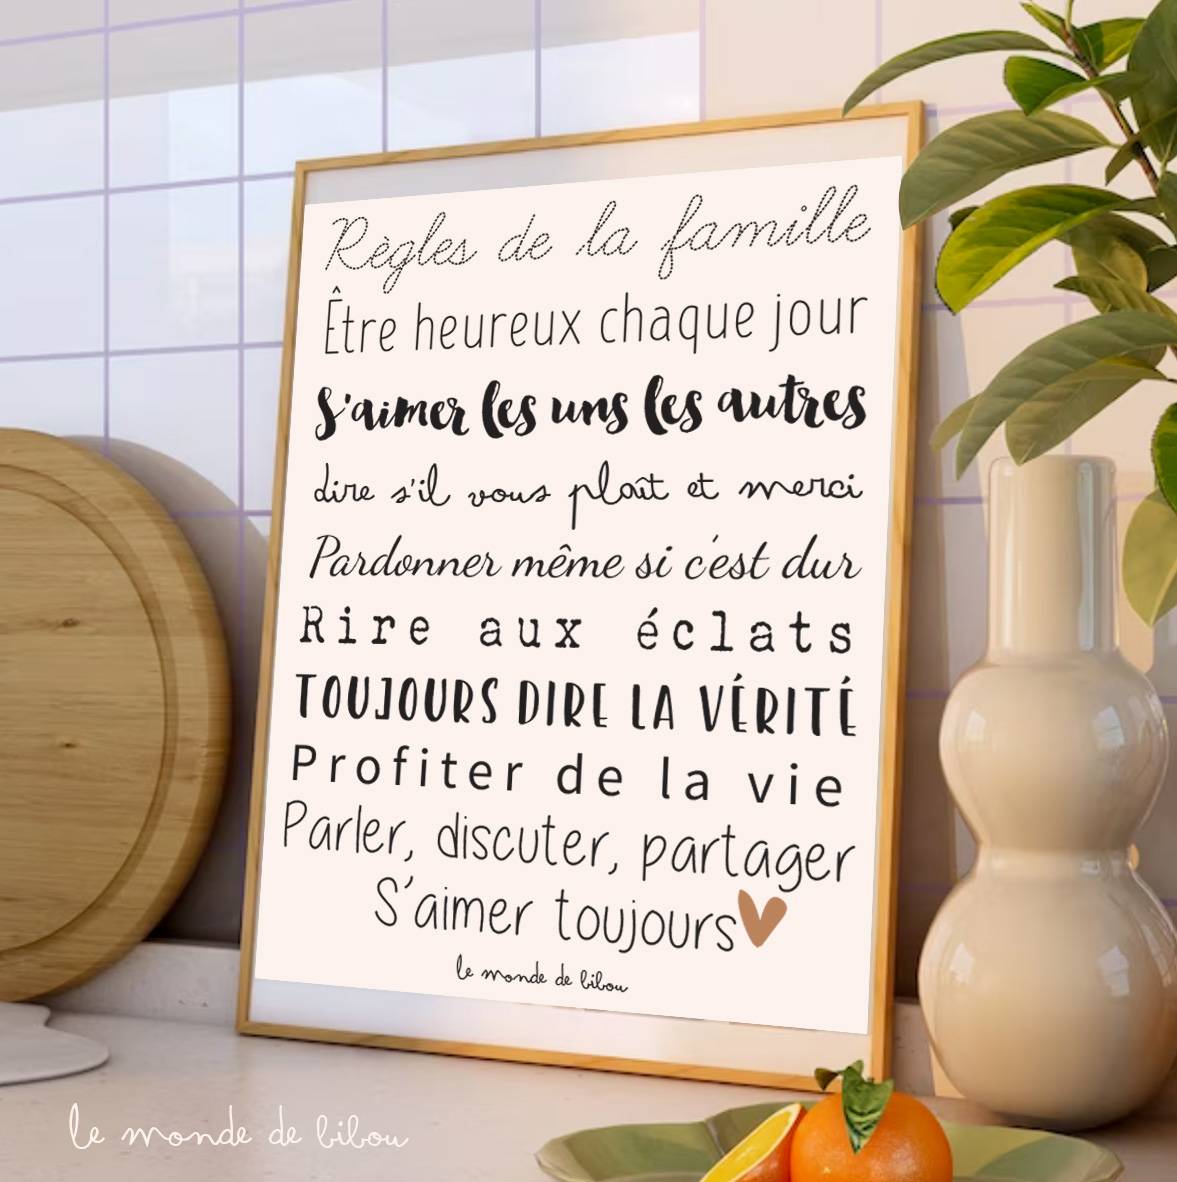 Règles de la famille
Être heureux chaque jour
S'aimer les uns les autres
dire s'il vous plaît et merci
Pardonner même si c'est dur
Rire aux éclats
TOUJOURS DIRE LA VÉRITÉ
Profiter de la vie
Parler, discuter, partager
S'aimer toujours
le monde de bibou
le monde de bibou